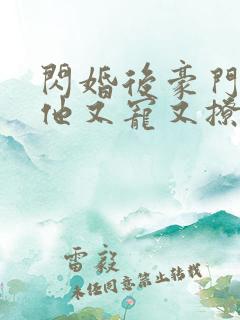 閃婚後豪門
他又寵又撩
雷毅
未任同意禁止转载